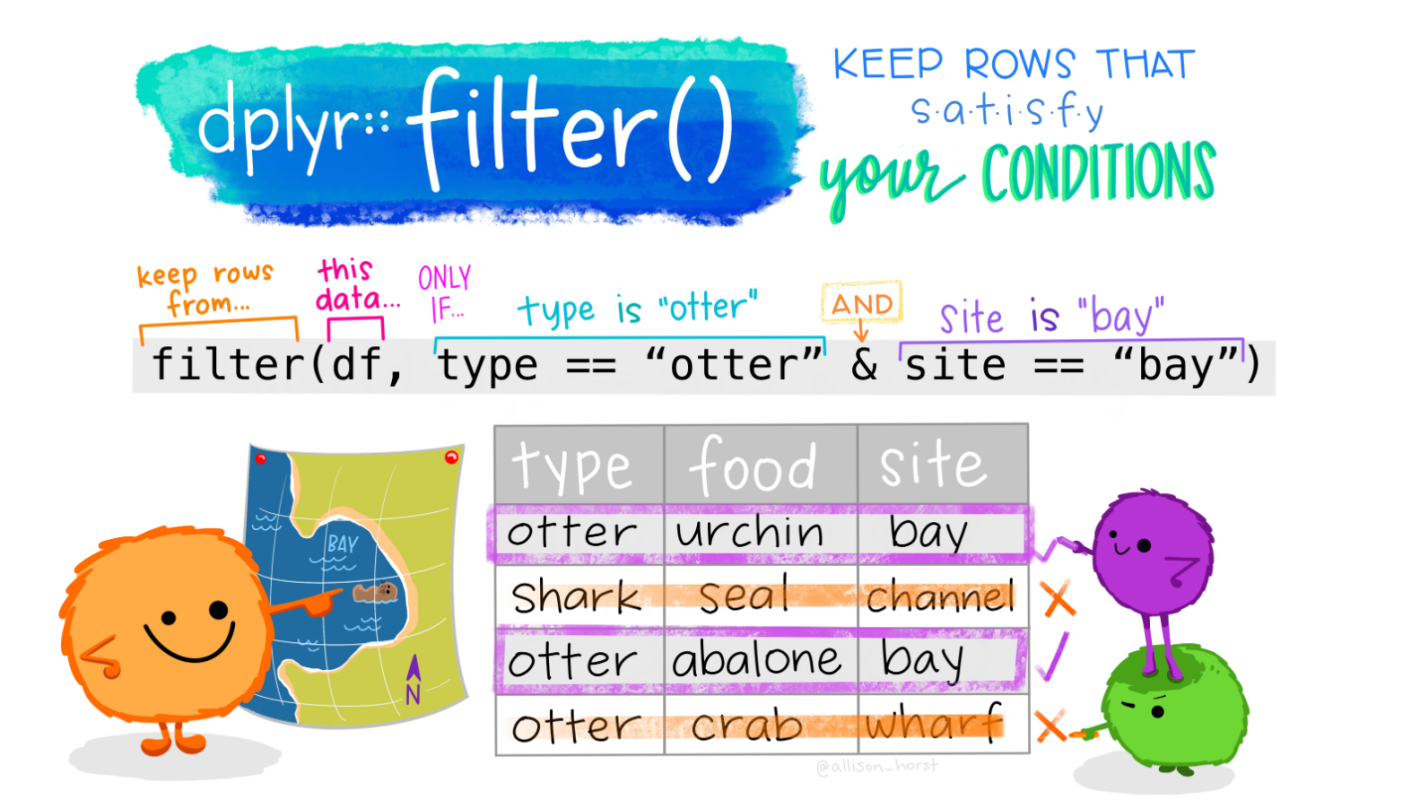 dplyr::filter()
KEEP ROWS THAT
s·a·t·i·s·f·y
your CONDITIONS
keep rows
from...
this
data...
ONLY
IF...
type is "otter"
AND
site is "bay"
filter(df, type == “otter” & site == “bay”)
BAY
N
type food site
otter urchin bay
Shark seal channel
otter abalone bay
otter crab wharf
@allison_horst